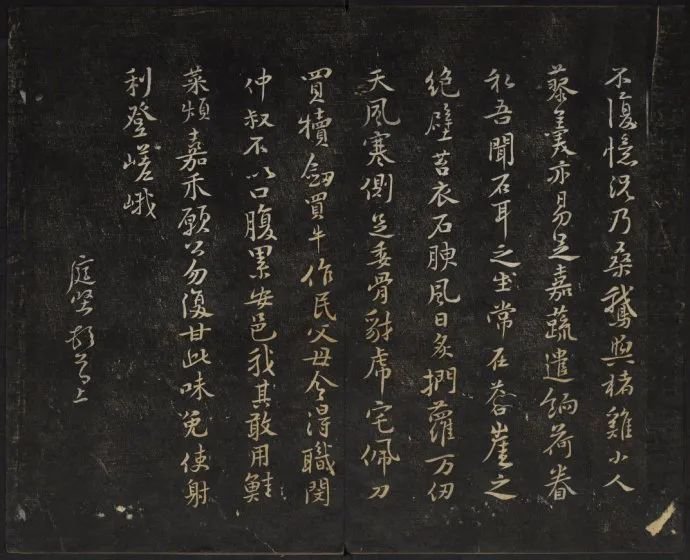 不復憶況乃桑鵝與楮雞小人
藜羹亦易足嘉蔬遣餉荷眷
私吾聞石耳之生常在蒼崖之
絕壁苔衣石腴風日炙捫蘿万仞
天風寒側足委骨豺虎宅佩刀
買犢劍買牛作民父母今得職閔
仲叔不以口腹累安邑我其敢用鮭
菜煩嘉禾願公勿復甘此味免使射
利登嵯峨
庭堅頓首上